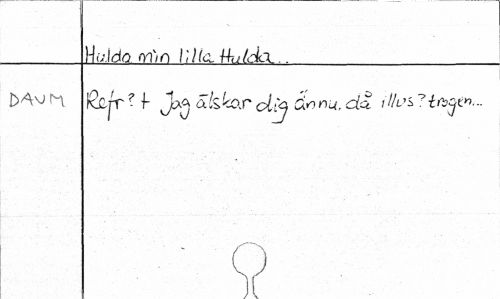 Hulda min lilla Hulda..
DAUM Refr?t Jag älskar dig ännu, då illus?trogen...